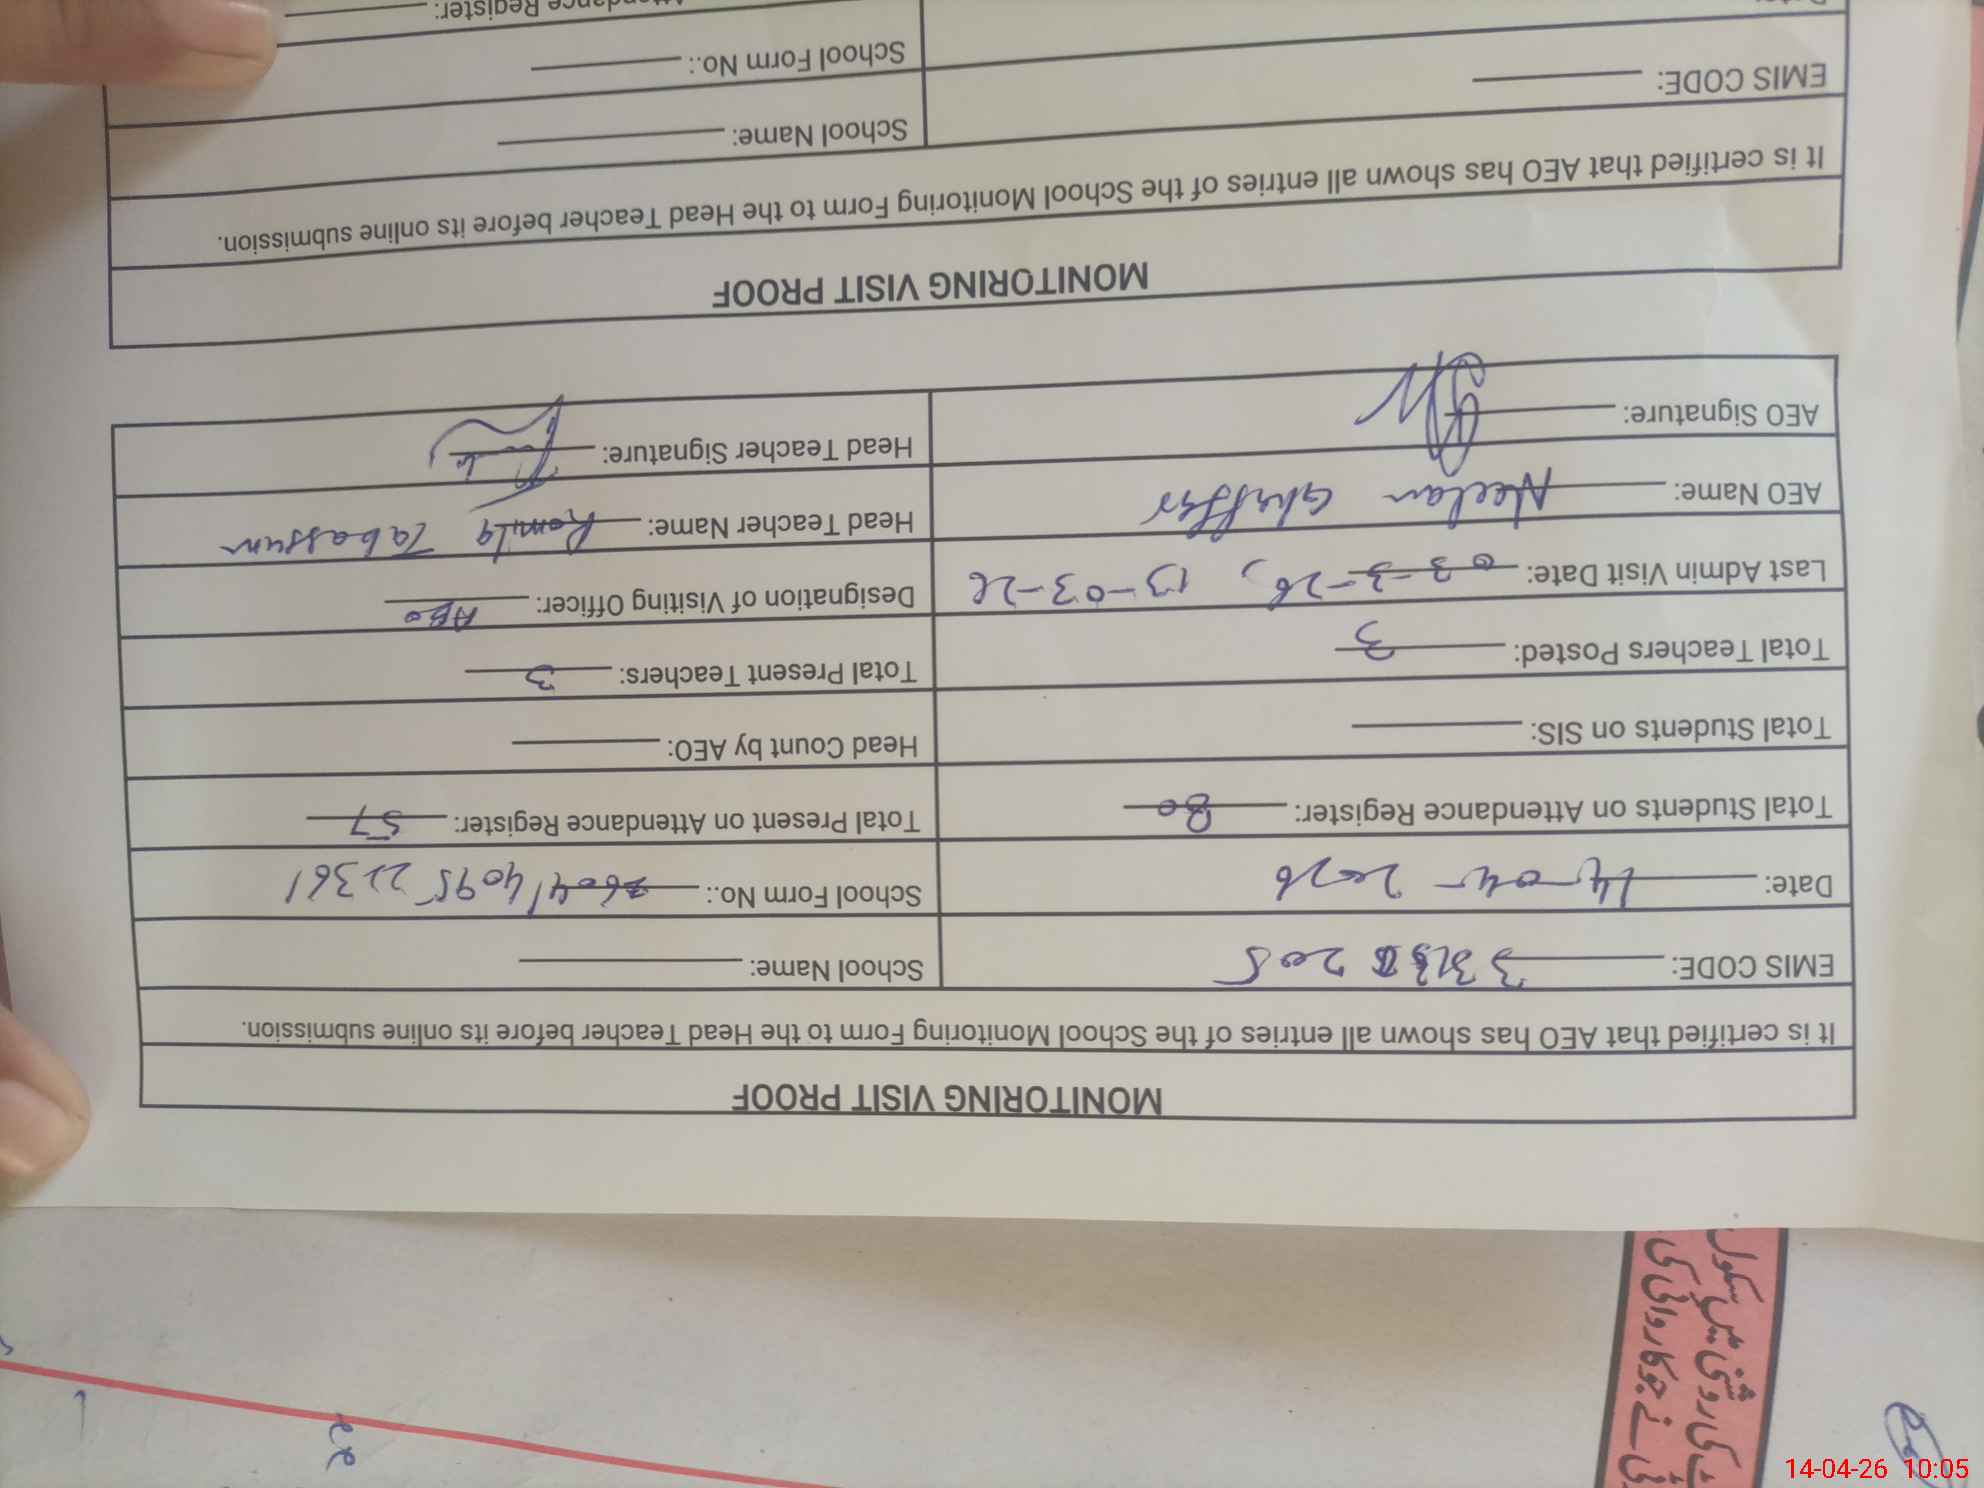 MONITORING VISIT PROOF
It is certified that AEO has shown all entries of the School Monitoring Form to the Head Teacher before its online submission.
EMIS CODE: School Name:
Date: 14-04-2026 School Form No.:
Total Students on Attendance Register: 80 Total Present on Attendance Register: 57
Total Students on SIS: Head Count by AEO:
Total Teachers Posted: 3 Total Present Teachers: 3
Last Admin Visit Date: 03-3-26, 13-03-26 Designation of Visiting Officer: AEO
AEO Name: Neelam Ghaffar Head Teacher Name: Romila Tabassum
AEO Signature: Head Teacher Signature:
MONITORING VISIT PROOF
It is certified that AEO has shown all entries of the School Monitoring Form to the Head Teacher before its online submission.
EMIS CODE: School Name:
School Form No.:
Register:
14-04-26 10:05